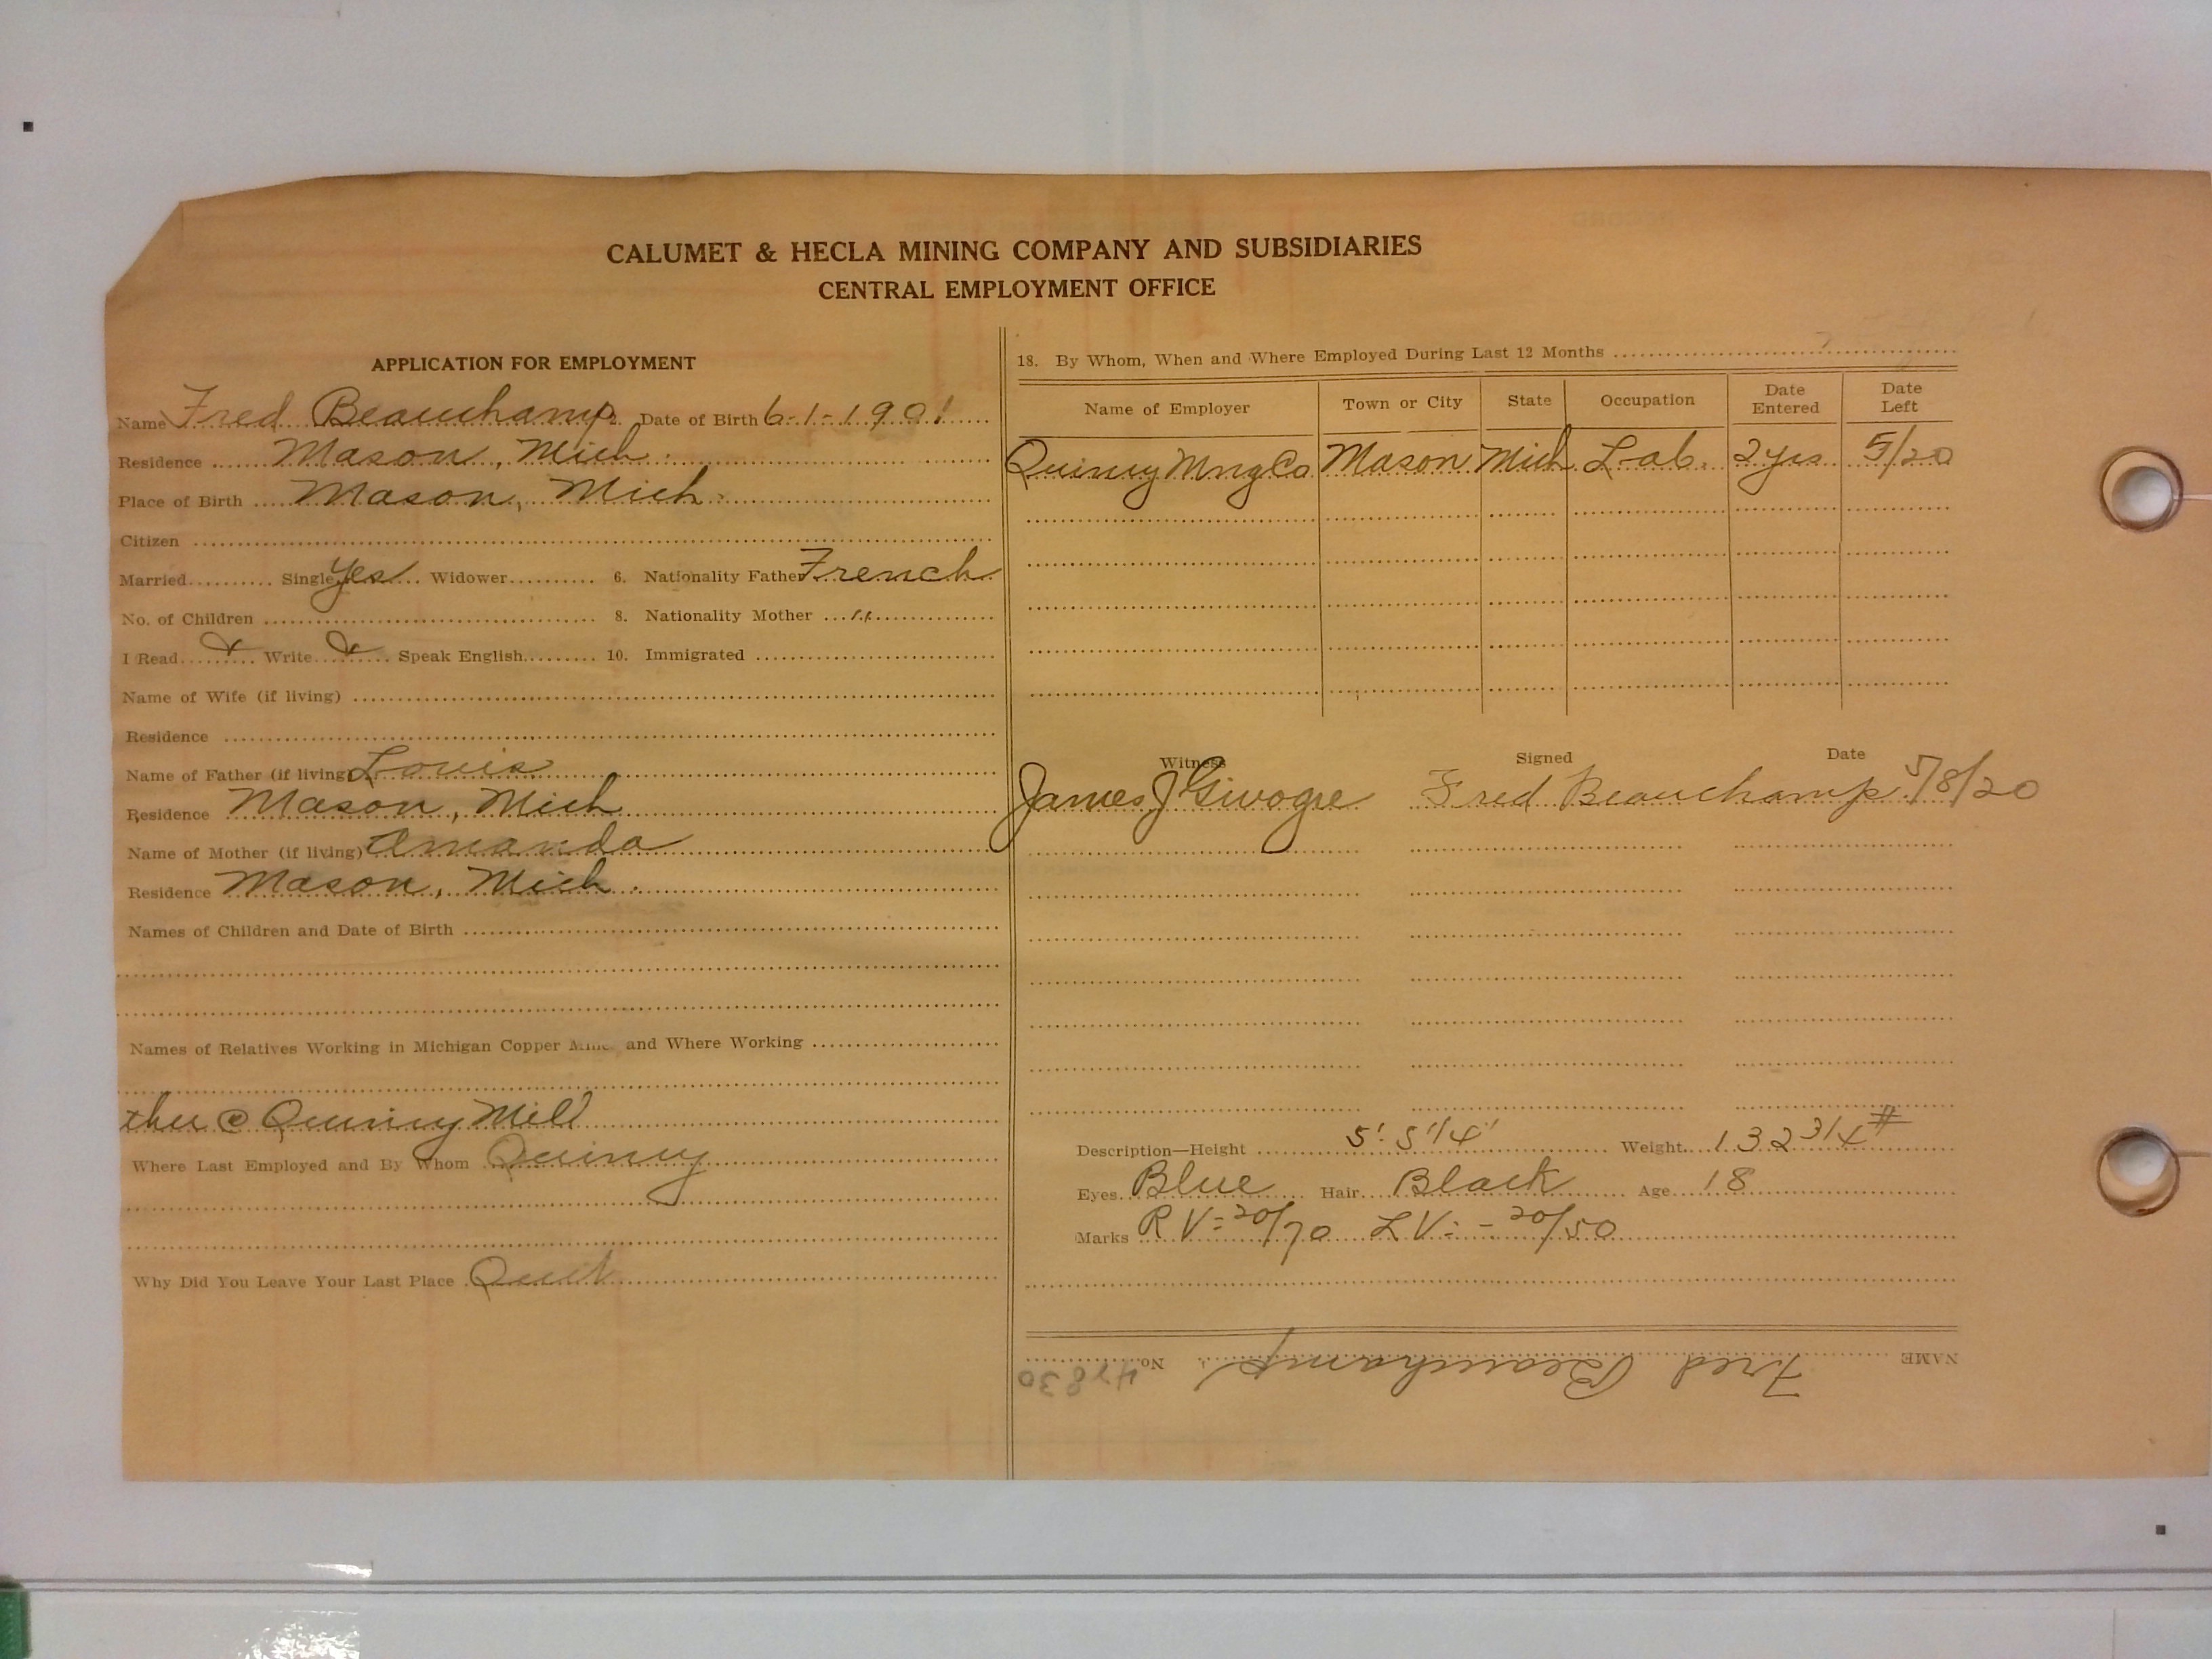 CALUMET & HECLA MINING COMPANY AND SUBSIDIARIES
CENTRAL EMPLOYMENT OFFICE
APPLICATION FOR EMPLOYMENT
Name Fred Beauchamp Date of Birth 6-1-1901
Residence Mason, Mich.
Place of Birth Mason, Mich.
Citizen
Married Single Yes Widower 6. Nationality Father French
No. of Children 8. Nationality Mother "
I Read Write Speak English 10. Immigrated
Name of Wife (if living)
Residence
Name of Father (if living) Louis
Residence Mason, Mich
Name of Mother (if living) Amanda
Residence Mason, Mich.
Names of Children and Date of Birth
Names of Relatives Working in Michigan Copper and Where Working
ther @ Quincy Mill
Where Last Employed and By Whom Quincy
Why Did You Leave Your Last Place Quit
18. By Whom, When and Where Employed During Last 12 Months
Name of Employer Town or City State Occupation Date Entered Date Left
Quincy Mng Co Mason Mich Lab. 2 yrs 5/20
Witness Signed Date
James J Fred Beauchamp 5/8/20
Description—Height 5' 5 1/4" Weight 132 3/4 #
Eyes Blue Hair Black Age 18
Marks R V = 20/70 L V = - 20/50
NAME Fred Beauchamp No. 47830